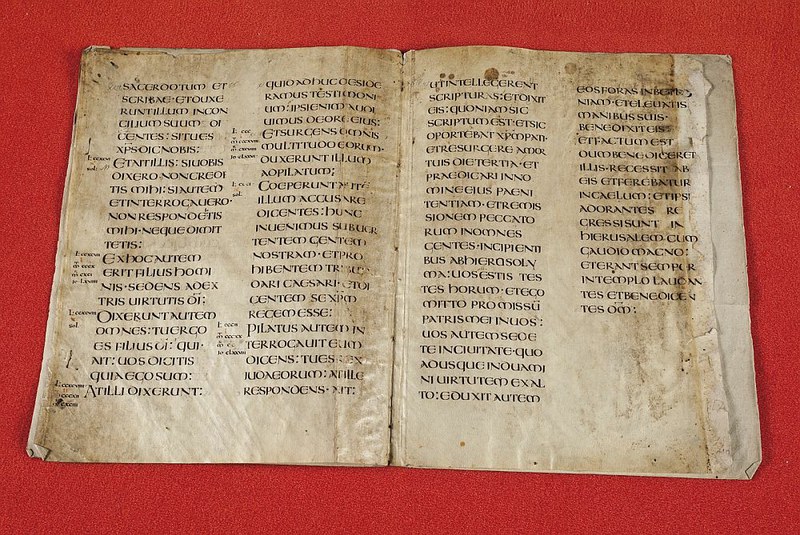 SACERDOTUM ET
SCRIBAE·ETDUXE
RUNTILLUM INCON
CILIUM SUUM DI
CENTES: SITUES
XP̅S DICNOBIS:
ETAITILLIS: SIUOBIS
DIXERO NONCREDI
TIS MIHI: SIAUTEM
ETINTERROGAUERO·
NONRESPONDETIS
MIHI·NEQUE DIMIT
TETIS:
EXHOCAUTEM
ERIT FILIUS HOMI
NIS·SEDENS ADEX
TRIS UIRTUTIS D̅I̅:
DIXERUNTAUTEM
OMNES: TUERGO
ES FILIUS D̅I̅: QUI·
AIT: UOS DICITIS
QUIAEGOSUM:
ATILLI DIXERUNT:
QUIDADHUC DESIDE
RAMUS TESTIMONI
UM: IPSIENIM AUDI
UIMUS DEORE EIUS:
ETSURGENS OMNIS
MULTITUDO EORUM·
DUXERUNT ILLUM
ADPILATUM;
COEPERUNT
ILLUM ACCUSARE
DICENTES: HUNC
INUENIMUS SUBUER
TENTEM GENTEM
NOSTRAM·ETPRO
HIBENTEM
DARI CAESARI·
CENTEM SE XP̅M
REGEM ESSE:
PILATUS AUTEM IN
TERROGAUIT EUM
DICENS: TUES: REX
IUDAEORUM: ATILLE
RESPONDENS·AIT:
UTINTELLEGERENT
SCRIPTURAS: ETDIXIT
EIS: QUONIAM SIC
SCRIPTUM EST·ETSIC
OPORTEBAT XP̅M PATI·
ETRESURGERE AMOR
TUIS DIETERTIA·ET
PRAEDICARI INNO
MINE EIUS PAENI
TENTIAM·ETREMIS
SIONEM PECCATO
RUM INOMNES
GENTES·INCIPIENTI
BUS ABHIEROSOLY
MA: UOS ESTIS TES
TES HORUM·ETEGO
MITTO PROMISSŪ
PATRIS MEI INUOS:
UOS AUTEM SEDE
TE INCIUITATE·QUO
ADUSQUE INDUAMI
NI UIRTUTEM EXAL
TO: EDUXIT AUTEM
EOS FORAS INBETHA
NIAM·ETELEUATIS
MANIBUS SUIS·
BENEDIXIT EIS:
ETFACTUM EST
DUM BENEDICERET
ILLIS·RECESSIT AB
EIS ETFEREBATUR
INCAELUM: ETIPSI
ADORANTES RE
GRESSI SUNT IN
HIERUSALEM CUM
GAUDIO MAGNO:
ETERANT SEMPER
INTEMPLO LAUDAN
TES ETBENEDICEN
TES D̅M̅: